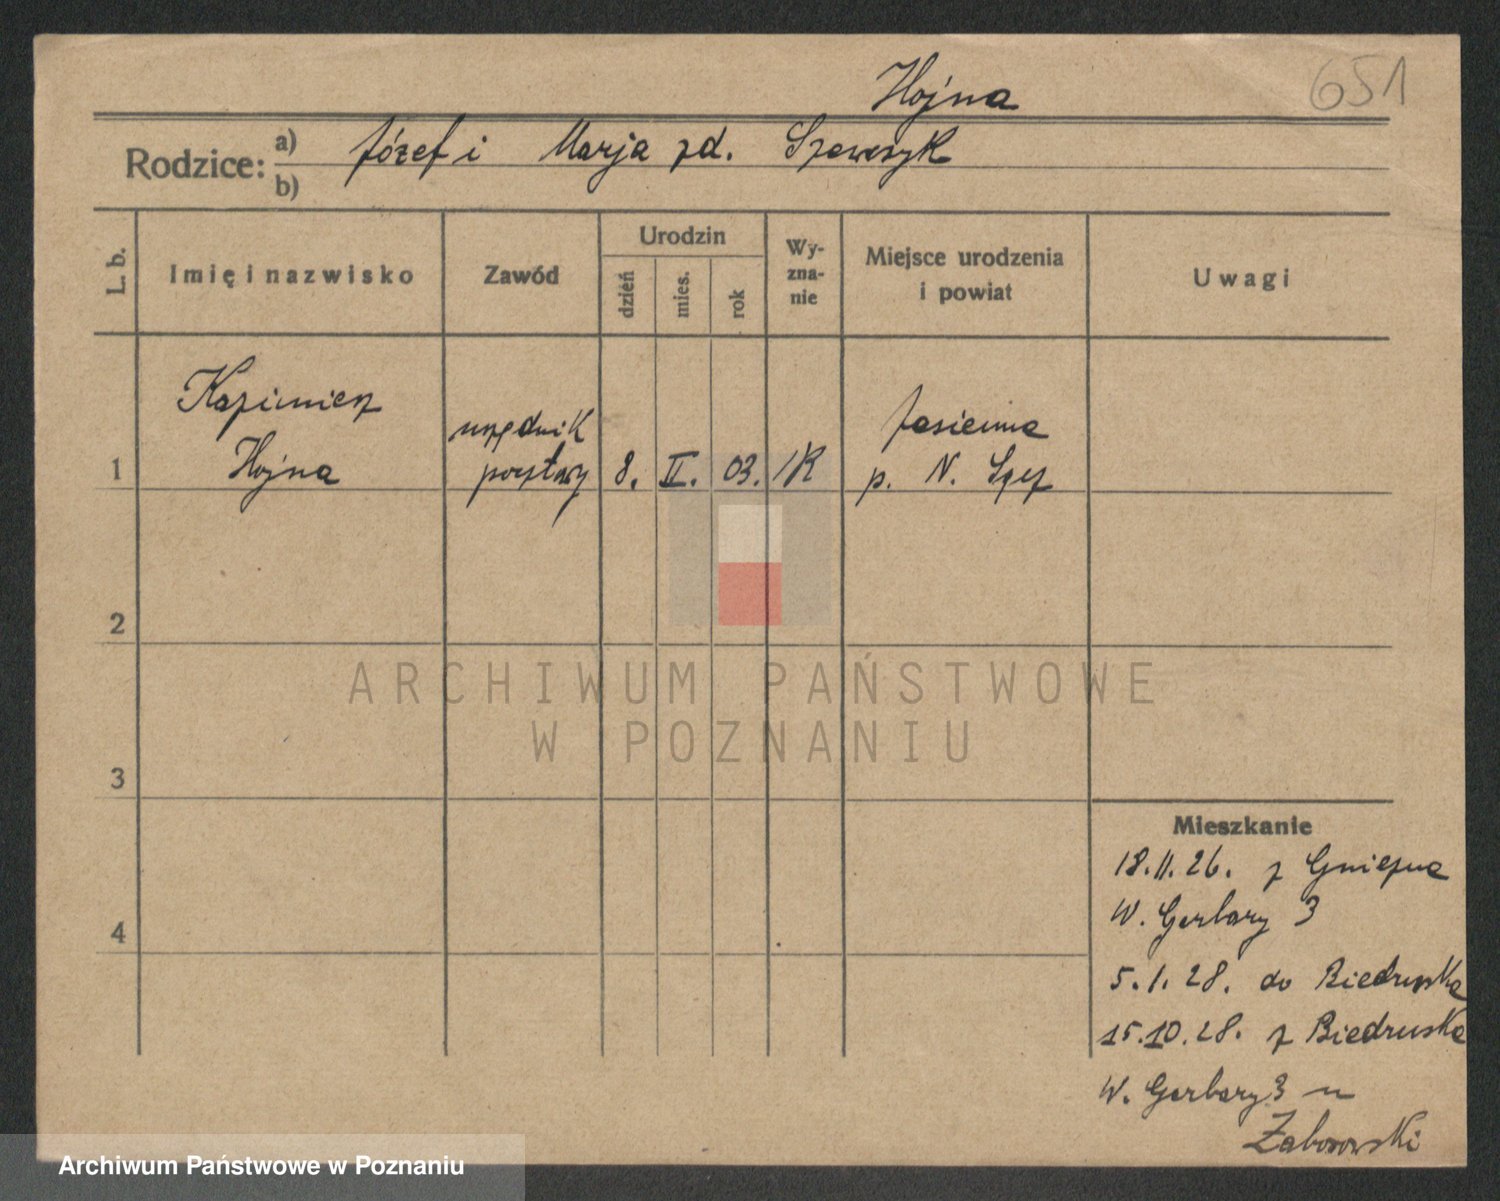 651
Hojna
Rodzice: a) Józef i Marja zd. Szewczyk
b)
L. b. Imię i nazwisko Zawód Urodzin dzień mies. rok Wy-zna-nie Miejsce urodzenia i powiat Uwagi
Kazimierz urzędnik Jasienna
1 Hojna pocztowy 8. II. 03. RK p. N. Sącz
2
ARCHIWUM PAŃSTWOWE
W POZNANIU
3
Mieszkanie
18.11.26. z Gniezna
W. Garbary 3
4
5.1.28. do Biedruska
15.10.28. z Biedruska
W. Garbary 3 u
Zaborowski
Archiwum Państwowe w Poznaniu